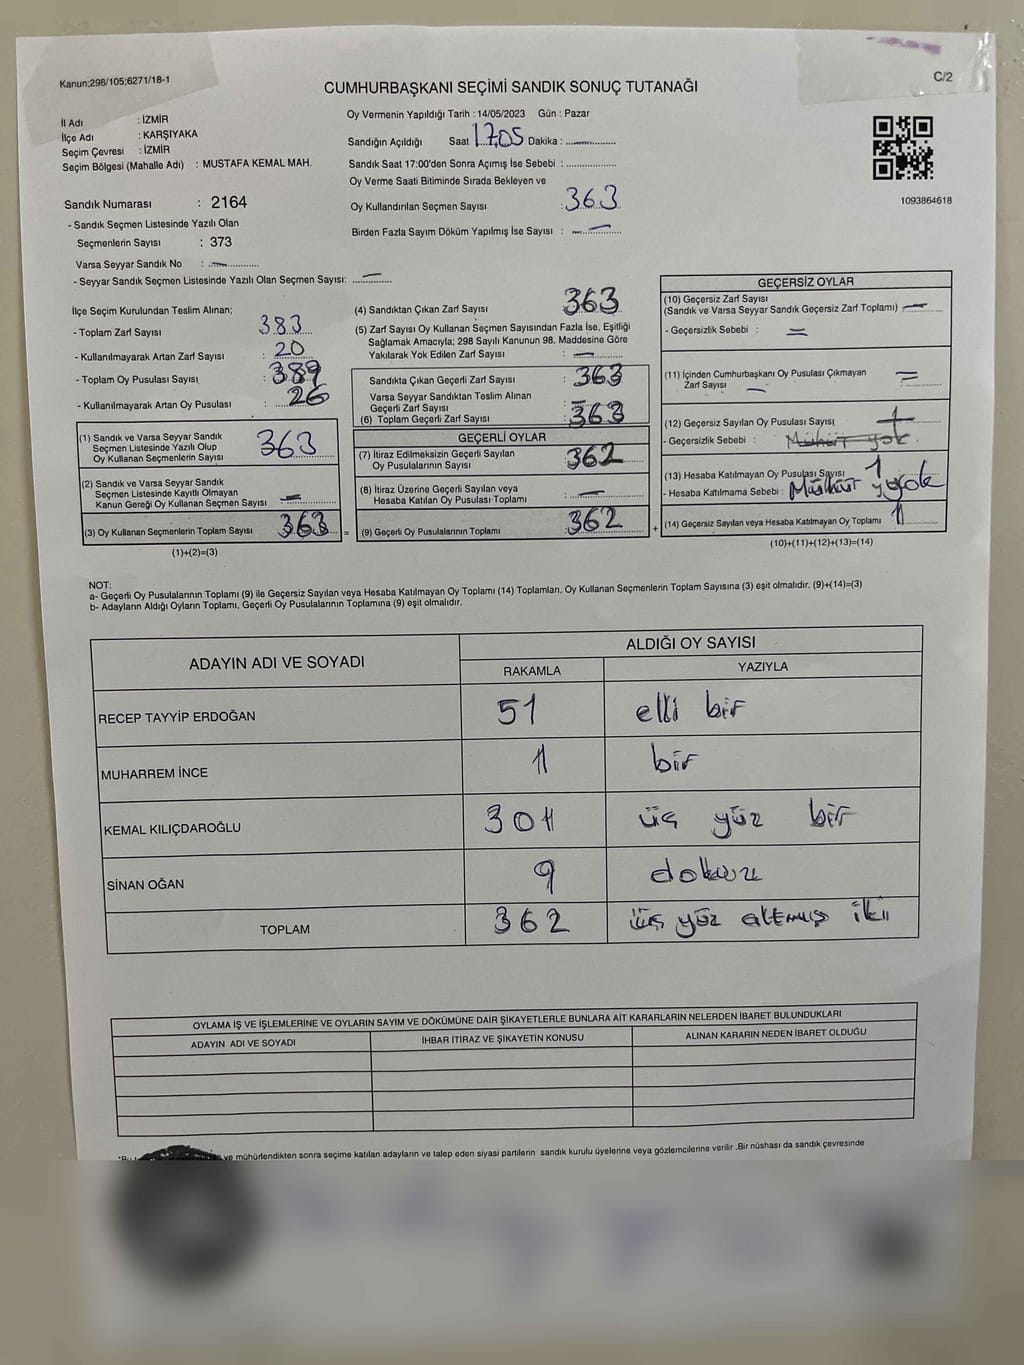 Kanun;298/105;6271/18-1
C/2
CUMHURBAŞKANI SEÇİMİ SANDIK SONUÇ TUTANAĞI
İl Adı : İZMİR
İlçe Adı : KARŞIYAKA
Seçim Çevresi : İZMİR
Seçim Bölgesi (Mahalle Adı) : MUSTAFA KEMAL MAH.
Sandık Numarası : 2164
- Sandık Seçmen Listesinde Yazılı Olan
Seçmenlerin Sayısı : 373
Varsa Seyyar Sandık No : —
- Seyyar Sandık Seçmen Listesinde Yazılı Olan Seçmen Sayısı: —
Oy Vermenin Yapıldığı Tarih : 14/05/2023 Gün : Pazar
Sandığın Açıldığı Saat 17.05 Dakika : —
Sandık Saat 17:00'den Sonra Açımış İse Sebebi :
Oy Verme Saati Bitiminde Sırada Bekleyen ve
Oy Kullandırılan Seçmen Sayısı : 363
Birden Fazla Sayım Döküm Yapılmış İse Sayısı : —
1093864618
İlçe Seçim Kurulundan Teslim Alınan;
- Toplam Zarf Sayısı : 383
- Kullanılmayarak Artan Zarf Sayısı : 20
- Toplam Oy Pusulası Sayısı : 389
- Kullanılmayarak Artan Oy Pusulası : 26
(1) Sandık ve Varsa Seyyar Sandık
Seçmen Listesinde Yazılı Olup
Oy Kullanan Seçmenlerin Sayısı : 363
(2) Sandık ve Varsa Seyyar Sandık
Seçmen Listesinde Kayıtlı Olmayan
Kanun Gereği Oy Kullanan Seçmen Sayısı : —
(3) Oy Kullanan Seçmenlerin Toplam Sayısı : 363 =
(1)+(2)=(3)
(4) Sandıktan Çıkan Zarf Sayısı : 363
(5) Zarf Sayısı Oy Kullanan Seçmen Sayısından Fazla İse, Eşitliği
Sağlamak Amacıyla; 298 Sayılı Kanunun 98. Maddesine Göre
Yakılarak Yok Edilen Zarf Sayısı : —
Sandıkta Çıkan Geçerli Zarf Sayısı : 363
Varsa Seyyar Sandıktan Teslim Alınan
Geçerli Zarf Sayısı : —
(6) Toplam Geçerli Zarf Sayısı : 363
GEÇERLİ OYLAR
(7) İtiraz Edilmeksizin Geçerli Sayılan
Oy Pusulalarının Sayısı : 362
(8) İtiraz Üzerine Geçerli Sayılan veya
Hesaba Katılan Oy Pusulası Toplamı : —
(9) Geçerli Oy Pusulalarının Toplamı : 362 +
GEÇERSİZ OYLAR
(10) Geçersiz Zarf Sayısı
(Sandık ve Varsa Seyyar Sandık Geçersiz Zarf Toplamı) —
- Geçersizlik Sebebi : =
(11) İçinden Cumhurbaşkanı Oy Pusulası Çıkmayan
Zarf Sayısı — =
(12) Geçersiz Sayılan Oy Pusulası Sayısı
- Geçersizlik Sebebi : Mühür yok
(13) Hesaba Katılmayan Oy Pusulası Sayısı 1
- Hesaba Katılmama Sebebi : Mühür yok
(14) Geçersiz Sayılan veya Hesaba Katılmayan Oy Toplamı 1
(10)+(11)+(12)+(13)=(14)
NOT:
a- Geçerli Oy Pusulalarının Toplamı (9) ile Geçersiz Sayılan veya Hesaba Katılmayan Oy Toplamı (14) Toplamları, Oy Kullanan Seçmenlerin Toplam Sayısına (3) eşit olmalıdır. (9)+(14)=(3)
b- Adayların Aldığı Oyların Toplamı, Geçerli Oy Pusulalarının Toplamına (9) eşit olmalıdır.
ADAYIN ADI VE SOYADI
ALDIĞI OY SAYISI
RAKAMLA YAZIYLA
RECEP TAYYİP ERDOĞAN 51 elli bir
MUHARREM İNCE 1 bir
KEMAL KILIÇDAROĞLU 301 üç yüz bir
SİNAN OĞAN 9 dokuz
TOPLAM 362 üç yüz altmış iki
OYLAMA İŞ VE İŞLEMLERİNE VE OYLARIN SAYIM VE DÖKÜMÜNE DAİR ŞİKAYETLERLE BUNLARA AİT KARARLARIN NELERDEN İBARET BULUNDUKLARI
ADAYIN ADI VE SOYADI İHBAR İTİRAZ VE ŞİKAYETİN KONUSU ALINAN KARARIN NEDEN İBARET OLDUĞU
ve mühürlendikten sonra seçime katılan adayların ve talep eden siyasi partilerin sandık kurulu üyelerine veya gözlemcilerine verilir .Bir nüshası da sandık çevresinde